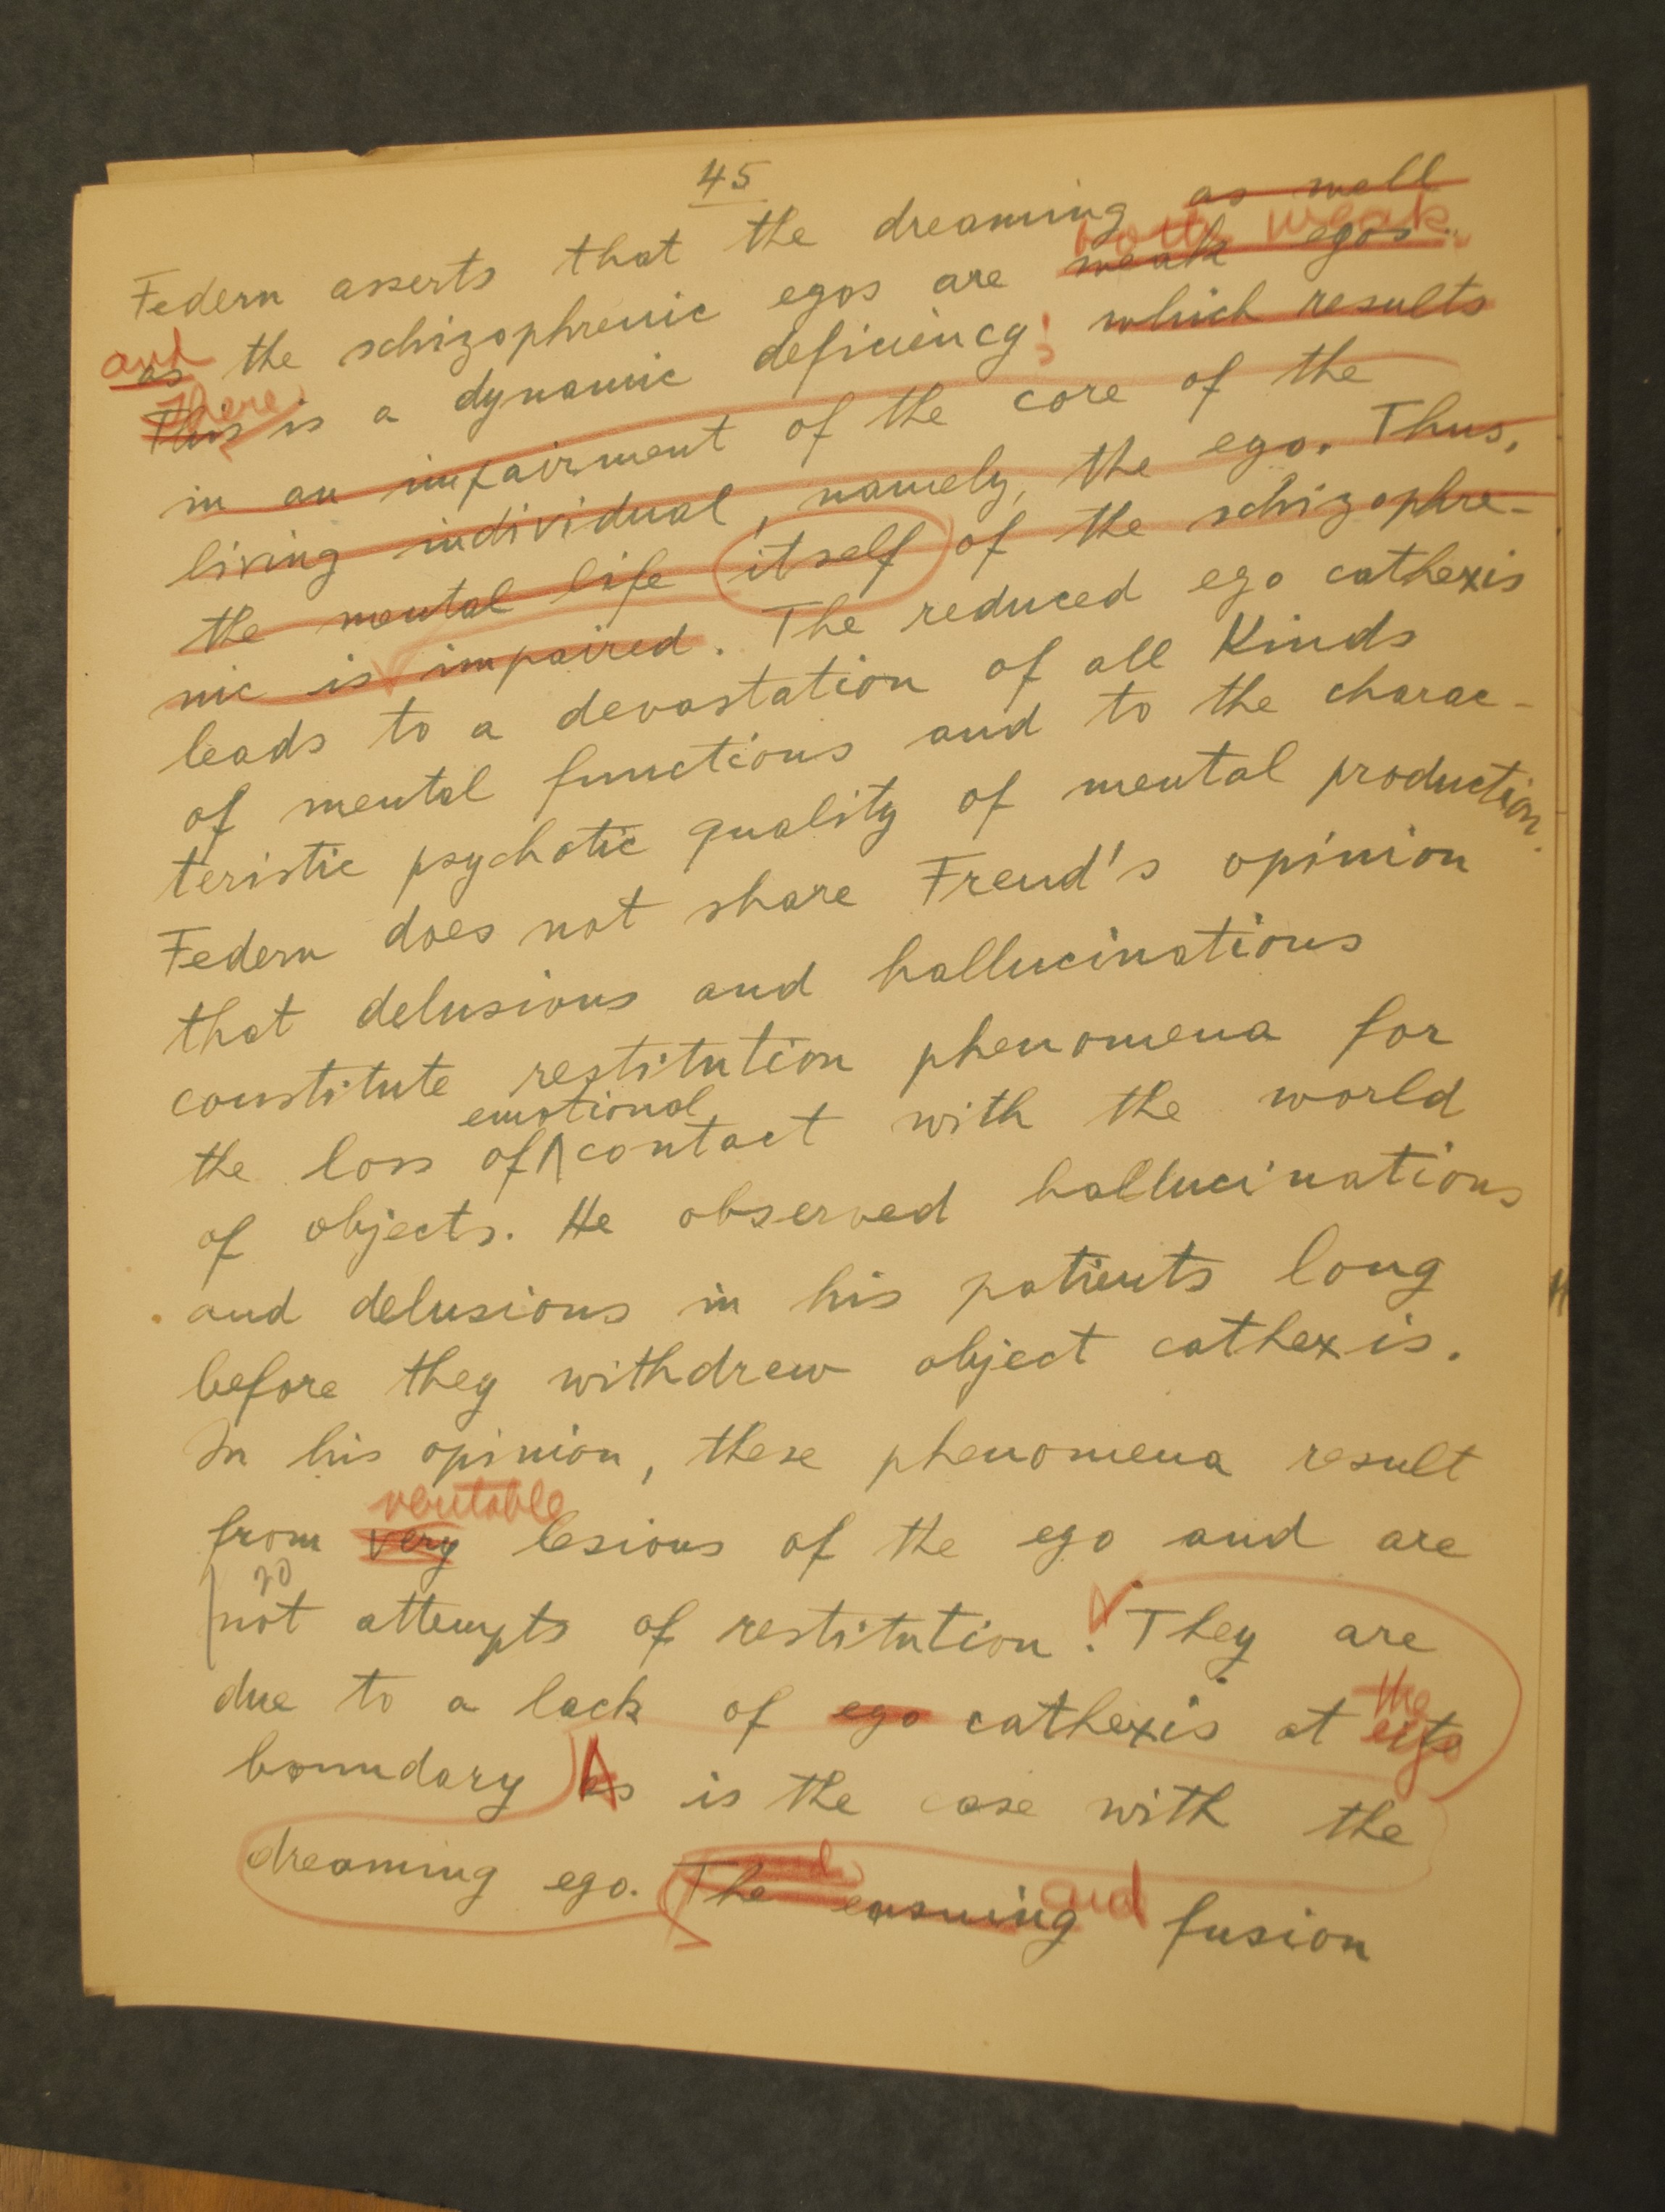 45
Federn asserts that the dreaming as well
both weak
and
as the schizophrenic egos are weak egos.
There
This is a dynamic deficiency; which results
in an impairment of the core of the
living individual, namely, the ego. Thus,
the mental life itself of the schizophre-
nic is impaired. The reduced ego cathexis
leads to a devastation of all kinds
of mental functions and to the charac-
teristic psychotic quality of mental production.
Federn does not share Freud's opinion
that delusions and hallucinations
constitute restitution phenomena for
emotional
the loss of contact with the world
of objects. He observed hallucinations
and delusions in his patients long
before they withdrew object cathexis.
In his opinion, these phenomena result
veritable
from very lesions of the ego and are
no
not attempts of restitution. They are
the
due to a lack of ego cathexis at its
ego
boundary As is the case with the
dreaming ego. The ensuing and fusion